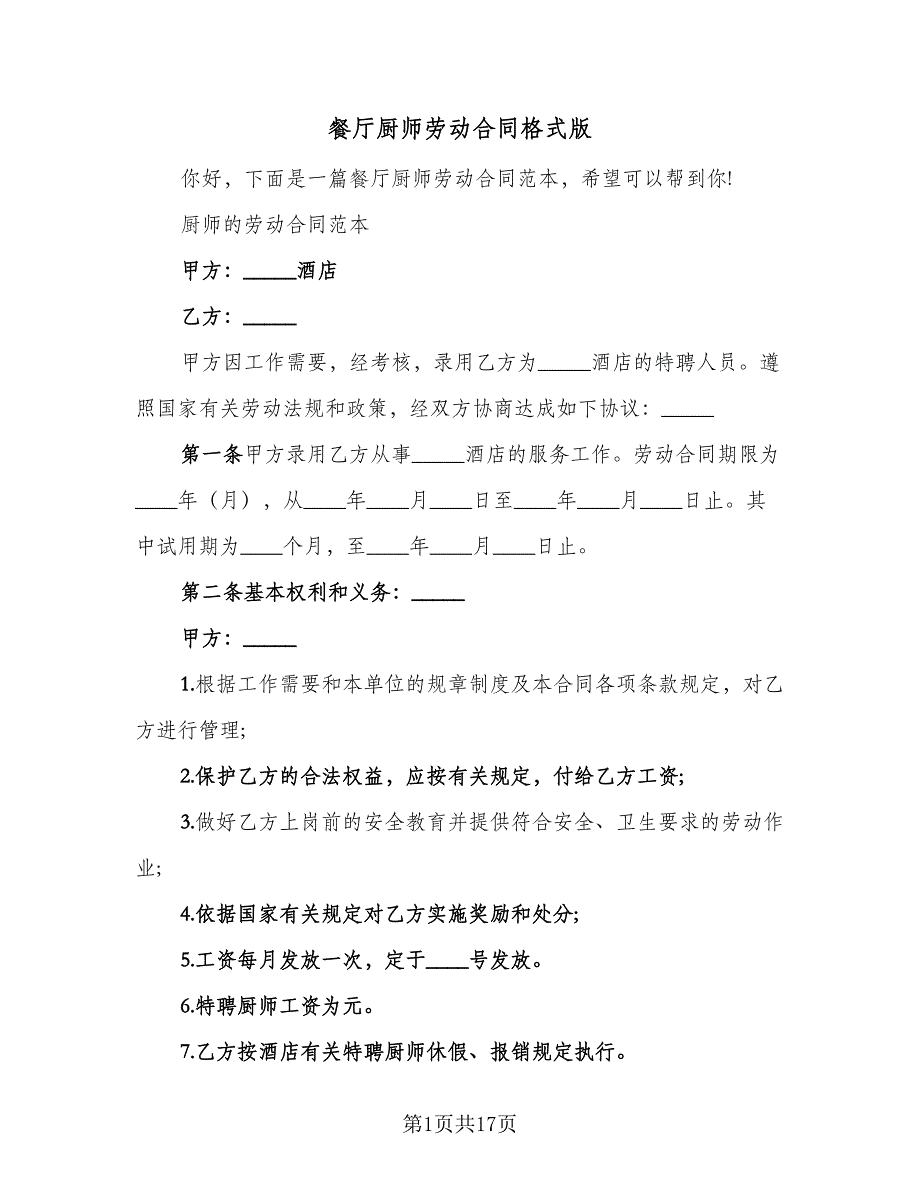 餐厅厨师劳动合同格式版
你好，下面是一篇餐厅厨师劳动合同范本，希望可以帮到你!
厨师的劳动合同范本
甲方：_____酒店
乙方：_____
甲方因工作需要，经考核，录用乙方为_____酒店的特聘人员。遵
照国家有关劳动法规和政策，经双方协商达成如下协议：_____
第一条甲方录用乙方从事_____酒店的服务工作。劳动合同期限为
____年（月），从____年____月____日至____年____月____日止。其
中试用期为____个月，至____年____月____日止。
第二条基本权利和义务：_____
甲方：_____
1.根据工作需要和本单位的规章制度及本合同各项条款规定，对乙
方进行管理;
2.保护乙方的合法权益，应按有关规定，付给乙方工资;
3.做好乙方上岗前的安全教育并提供符合安全、卫生要求的劳动作
业;
4.依据国家有关规定对乙方实施奖励和处分;
5.工资每月发放一次，定于____号发放。
6.特聘厨师工资为元。
7.乙方按酒店有关特聘厨师休假、报销规定执行。
第1页共17页